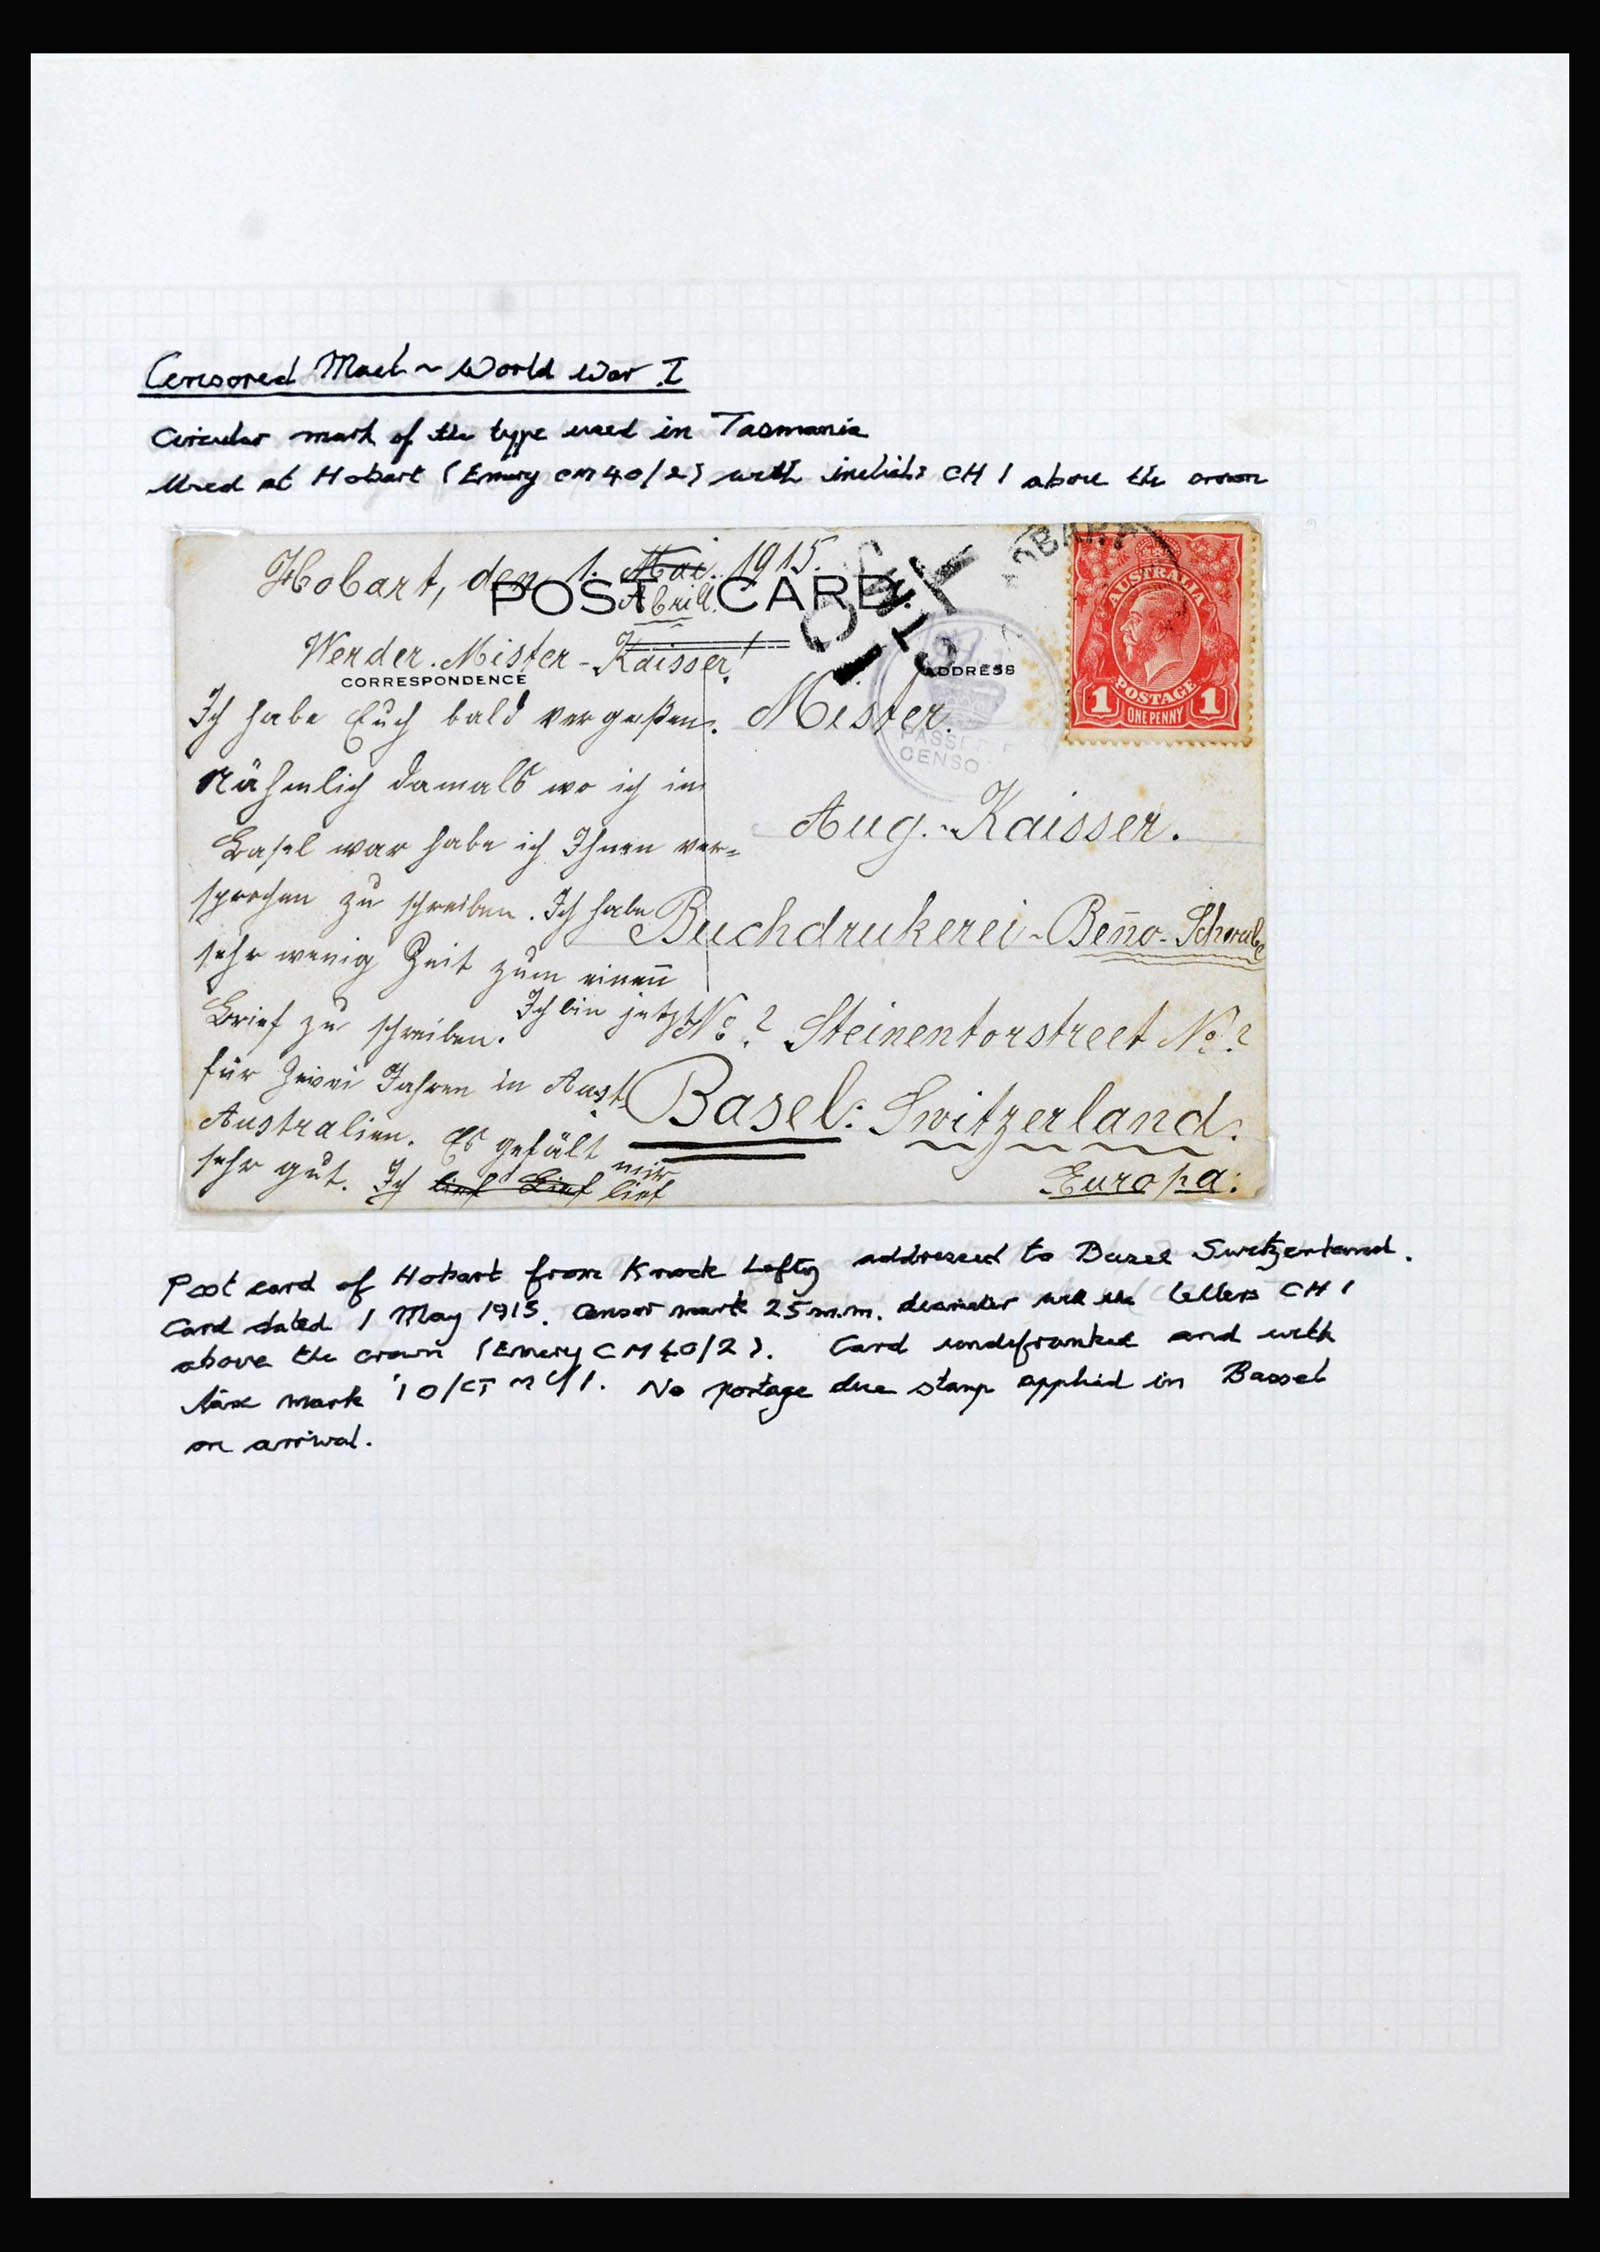 Censored Mail ~ World War I
Circular mark of the type used in Tasmania
Used at Hobart (Emery CM40/2) with initials CH 1 above the crown
Hobart, den 1. Mai. 1915.
Abrill.
POST CARD.
HOBART
Werder. Mister - Kaisser!
CORRESPONDENCE
ADDRESS
AUSTRALIA
POSTAGE
1 ONE PENNY 1
PASSED
CENSO
Ich habe Euch bald vergeßen.
Nähmlich damals wo ich in
Basel war habe ich Ihnen ver=
sprochen zu schreiben. Ich habe
sehr wenig Zeit zum einen
Brief zu schreiben. Ich bin jetzt
für Zwei Jahren in Aust
Australien. Es gefält
mir
sehr gut. Ich lief
Mister.
Aug. - Kaisser.
Buchdrukerei - Beño - Schwabe
No ? Steinentorstreet No ?
Basel: Switzerland.
Europa:
Post card of Hobart from Knock Lofty addressed to Basel Switzerland.
Card dated 1 May 1915. Censor mark 25 m.m. diameter with the letters CH 1
above the crown (Emery CM40/2). Card underfranked and with
tax mark '10/CT
No postage due stamp applied in Bassel
on arrival.